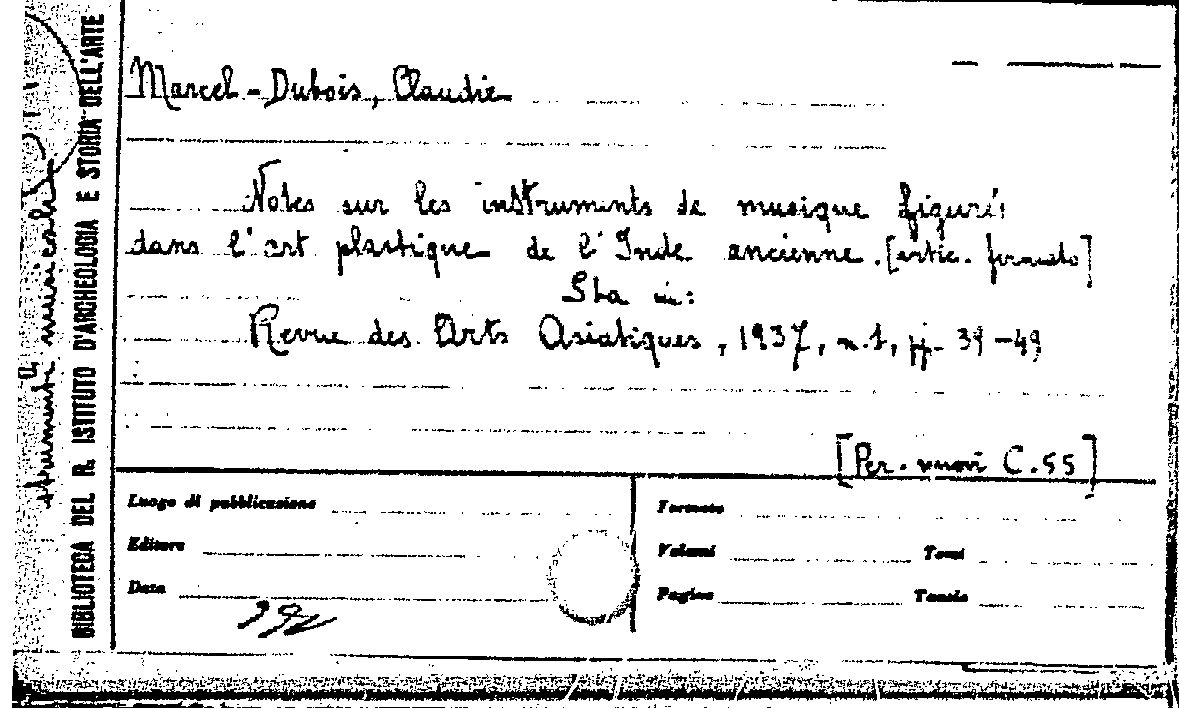 Marcel-Dubois, Claudie
Notes sur les instruments de musique figurés
dans l'art plastique de l'Inde ancienne. [artic. firmato]
Sta in:
Revue des Arts Asiatiques, 1937, n.1, pp. 39-49
[Per. nuovi C.55]
Luogo di pubblicazione
Editore
Data
Formato
Volumi Tomi
Pagine Tavole
BIBLIOTECA DEL R. ISTITUTO D'ARCHEOLOGIA E STORIA DELL'ARTE
strumenti musicali